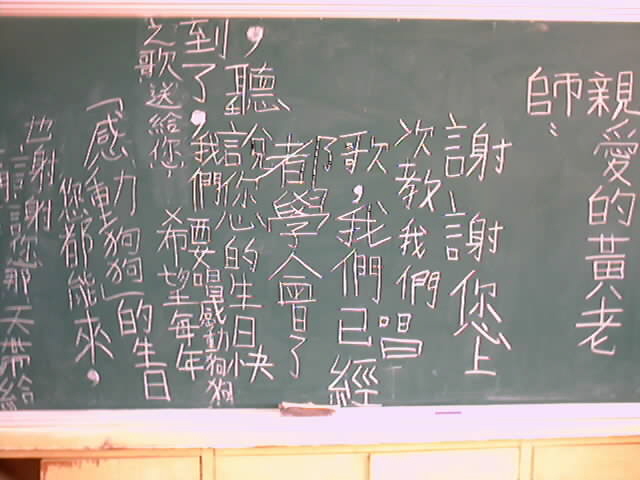 親愛的黃老
師：
謝謝您上
次教我們唱
歌，我們已經
都學會了
，聽說您的生日快
到了，我們要唱感動狗狗
之歌送給您，希望每年
「感動狗狗」的生日
您都能來，
也謝謝您那天帶給